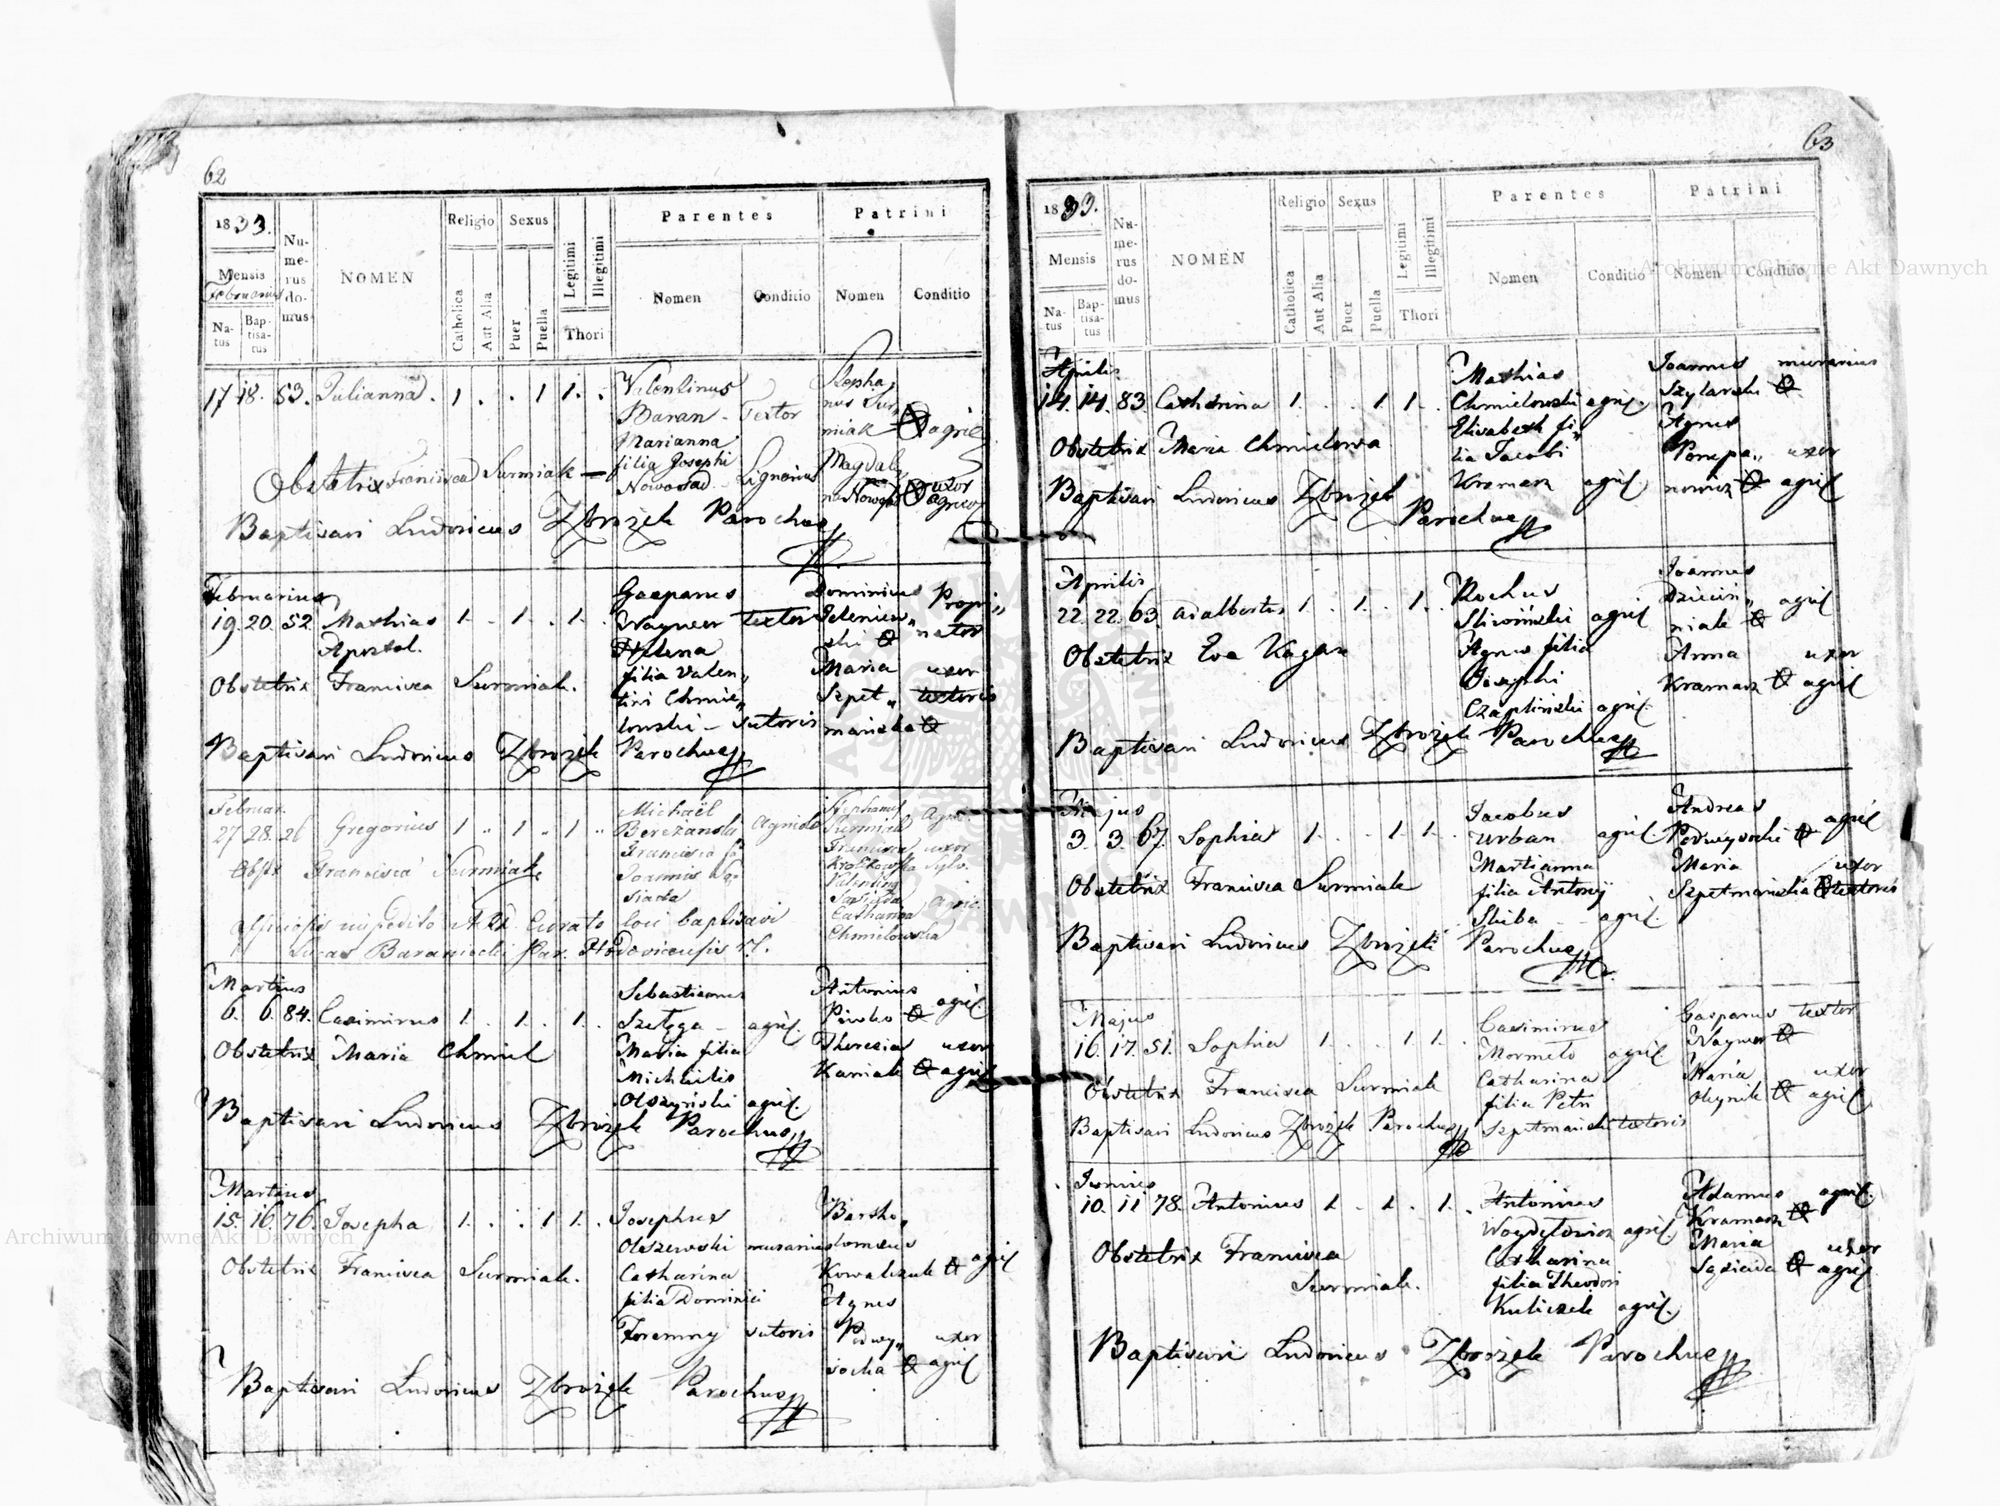 62
1833.
Mensis
Februarius
Natus
Baptisatus
Numerus domus
NOMEN
Religio
Catholica
Aut Alia
Sexus
Puer
Puella
Legitimi
Illegitimi
Thori
Parentes
Nomen
Conditio
Patrini
Nomen
Conditio
17 18. 53. Julianna. 1 . . 1 1. .
Valentinus
Baran - Textor
Marianna
filia Josephi
Nowosad - Lignarius
Stepha,
nus Sur,
miak agric
Magdal,
na uxor
agric
Obstetrix Francisca Surmiak
Baptisavi Ludovicus Zbrożek Parochus
Februarius
19. 20. 52. Mathias 1. . 1. . 1. .
Apostol.
Gasparus
Wagner textor
Helena
filia Valen„
tini Chmie„
lowski - sutoris
Dominicus Propi„
Zelenicw„ nator
ski
Maria uxor
Szpet„ textoris
mańska
Obstetrix Francisca Surmiak.
Baptisavi Ludovicus Zbrożek Parochus
Februar.
27. 28. 26 Gregorius 1 . 1 . 1 .
Michaël
Berezanski Agricola
Francisca
Joannis
Stephanus
Surmiak
Francisca uxor
Krotkowska
Valentinus
Catharina
Chmielowska
Obstx Francisca Surmiak
impedito curato loci baptisavi
Lucas Baraniecki Par.
Martius
6. 6. 84. Casimirus 1. . 1. . 1. .
Sebastianus
Szeliga - agric.
Maria filia
Michaëlis
Olszyński agric.
Antonius
Piwko agric
Theresia uxor
Kaniak agric
Obstetrix Maria Chmiel
Baptisavi Ludovicus Zbrożek Parochus
Martius
15. 16. 76. Josepha 1. . . 1 1. .
Josephus
Olszewski murarius
Catharina
filia Dominici
Foremny sutoris
Bartho„
lomeus
Kowalczuk agric
Agnes
Podwy„ uxor
socka agric
Obstetrix Francisca Surmiak.
Baptisavi Ludovicus Zbrożek Parochus
63
1833.
Mensis
Natus
Baptisatus
Numerus domus
NOMEN
Religio
Catholica
Aut Alia
Sexus
Puer
Puella
Legitimi
Illegitimi
Thori
Parentes
Nomen
Conditio
Patrini
Nomen
Conditio
Aprilis
14. 14. 83. Catharina 1. . . 1 1. .
Mathias
Chmielowski agric.
Elisabeth fi„
lia Jacobi
Kramarz agric.
Joannes murarius
Szylarski
Agnes
Pompa„ uxor
nowicz agric
Obstetrix Maria Chmielowa
Baptisavi Ludovicus Zbrożek
Parochus
Aprilis
22. 22. 63. Adalbertus 1. . 1. . 1. .
Rochus
Sliwiński agric
Agnes filia
Josephi
Czapliński agric.
Joannes
Dziecin„ agric
niak
Anna uxor
Kramarz agric
Obstetrix Eva Kagan
Baptisavi Ludovicus Zbrożek Parochus
Majus
3. 3. 67. Sophia 1. . . 1 1. .
Jacobus
Urban agric.
Martianna
filia Antonij
Skiba - agric.
Andreas
Podwysocki agric
Maria uxor
Szpetmańska textoris
Obstetrix Francisca Surmiak
Baptisavi Ludovicus Zbrożek Parochus
Majus
16. 17. 51. Sophia 1. . . 1 1. .
Casimirus
Mormelo agric
Catharina
filia Petri
Szpetmański textoris
Gasparus textor
Wagner
Maria uxor
Oleynik agric
Obstetrix Francisca Surmiak
Baptisavi Ludovicus Zbrożek Parochus
Junius
10. 11 78. Antonius 1. . 1. . 1. .
Antonius
Woydylowicz agric.
Catharina
filia Theodori
Kuliczek agric.
Adamus agric.
Kramarz
Maria uxor
Sąsiada agric
Obstetrix Francisca
Surmiak.
Baptisavi Ludovicus Zbrożek Parochus
Archiwum Główne Akt Dawnych
Archiwum Główne Akt Dawnych